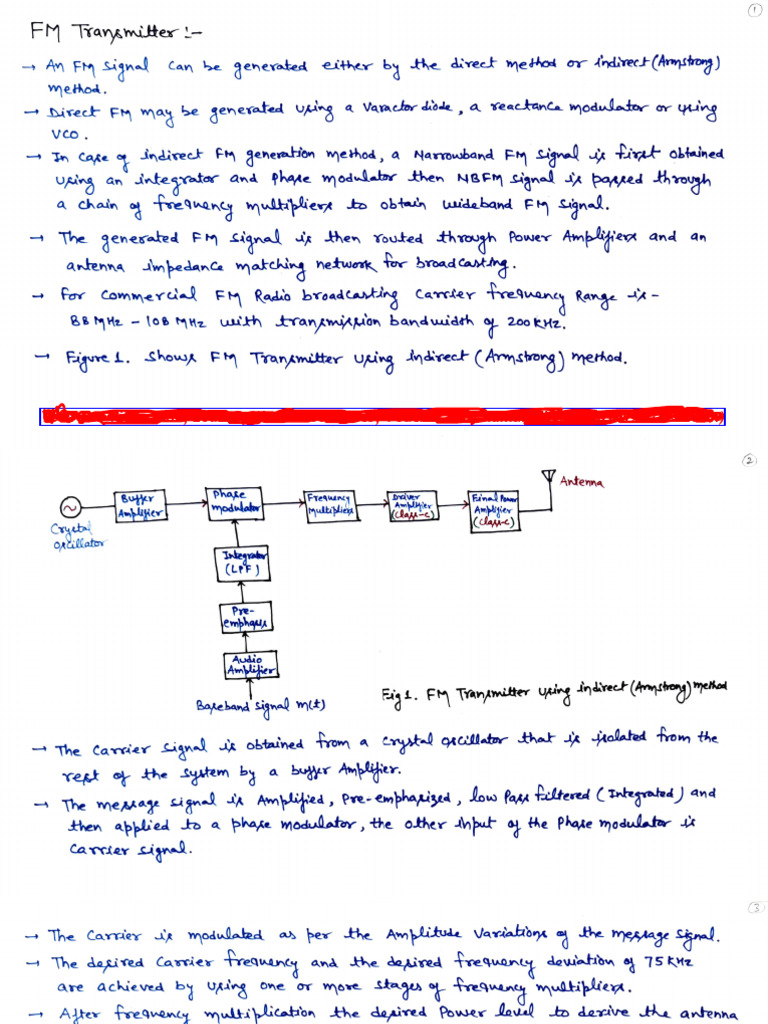 1
FM Transmitter :-
→ An FM signal can be generated either by the direct method or indirect (Armstrong)
method.
→ Direct FM may be generated using a Varactor diode, a reactance modulator or using
VCO.
→ In case of indirect FM generation method, a Narrowband FM signal is first obtained
using an integrator and Phase modulator then NBFM signal is passed through
a chain of frequency multipliers to obtain wideband FM signal.
→ The generated FM signal is then routed through Power Amplifiers and an
antenna impedance matching network for broadcasting.
→ For commercial FM Radio broadcasting Carrier frequency Range is -
88 MHz - 108 MHz with transmission bandwidth of 200 KHz.
→ Figure 1. Shows FM Transmitter using Indirect (Armstrong) method.
2
Antenna
Buffer
Amplifier
Phase
modulator
Frequency
Multipliers
Driver
Amplifier
(Class-C)
Final Power
Amplifier
(Class-C)
Crystal
oscillator
Integrator
(LPF)
Pre-
emphasis
Audio
Amplifier
Baseband signal m(t)
Fig 1. FM Transmitter using indirect (Armstrong) method
→ The carrier signal is obtained from a crystal oscillator that is isolated from the
rest of the system by a buffer Amplifier.
→ The message signal is Amplified, pre-emphasized, low Pass filtered (Integrated) and
then applied to a phase modulator, the other input of the Phase modulator is
carrier signal.
3
→ The Carrier is modulated as per the Amplitude Variations of the message signal.
→ The desired Carrier frequency and the desired frequency deviation of 75 KHz
are achieved by using one or more stages of frequency multipliers.
→ After frequency multiplication the desired Power level to derive the antenna